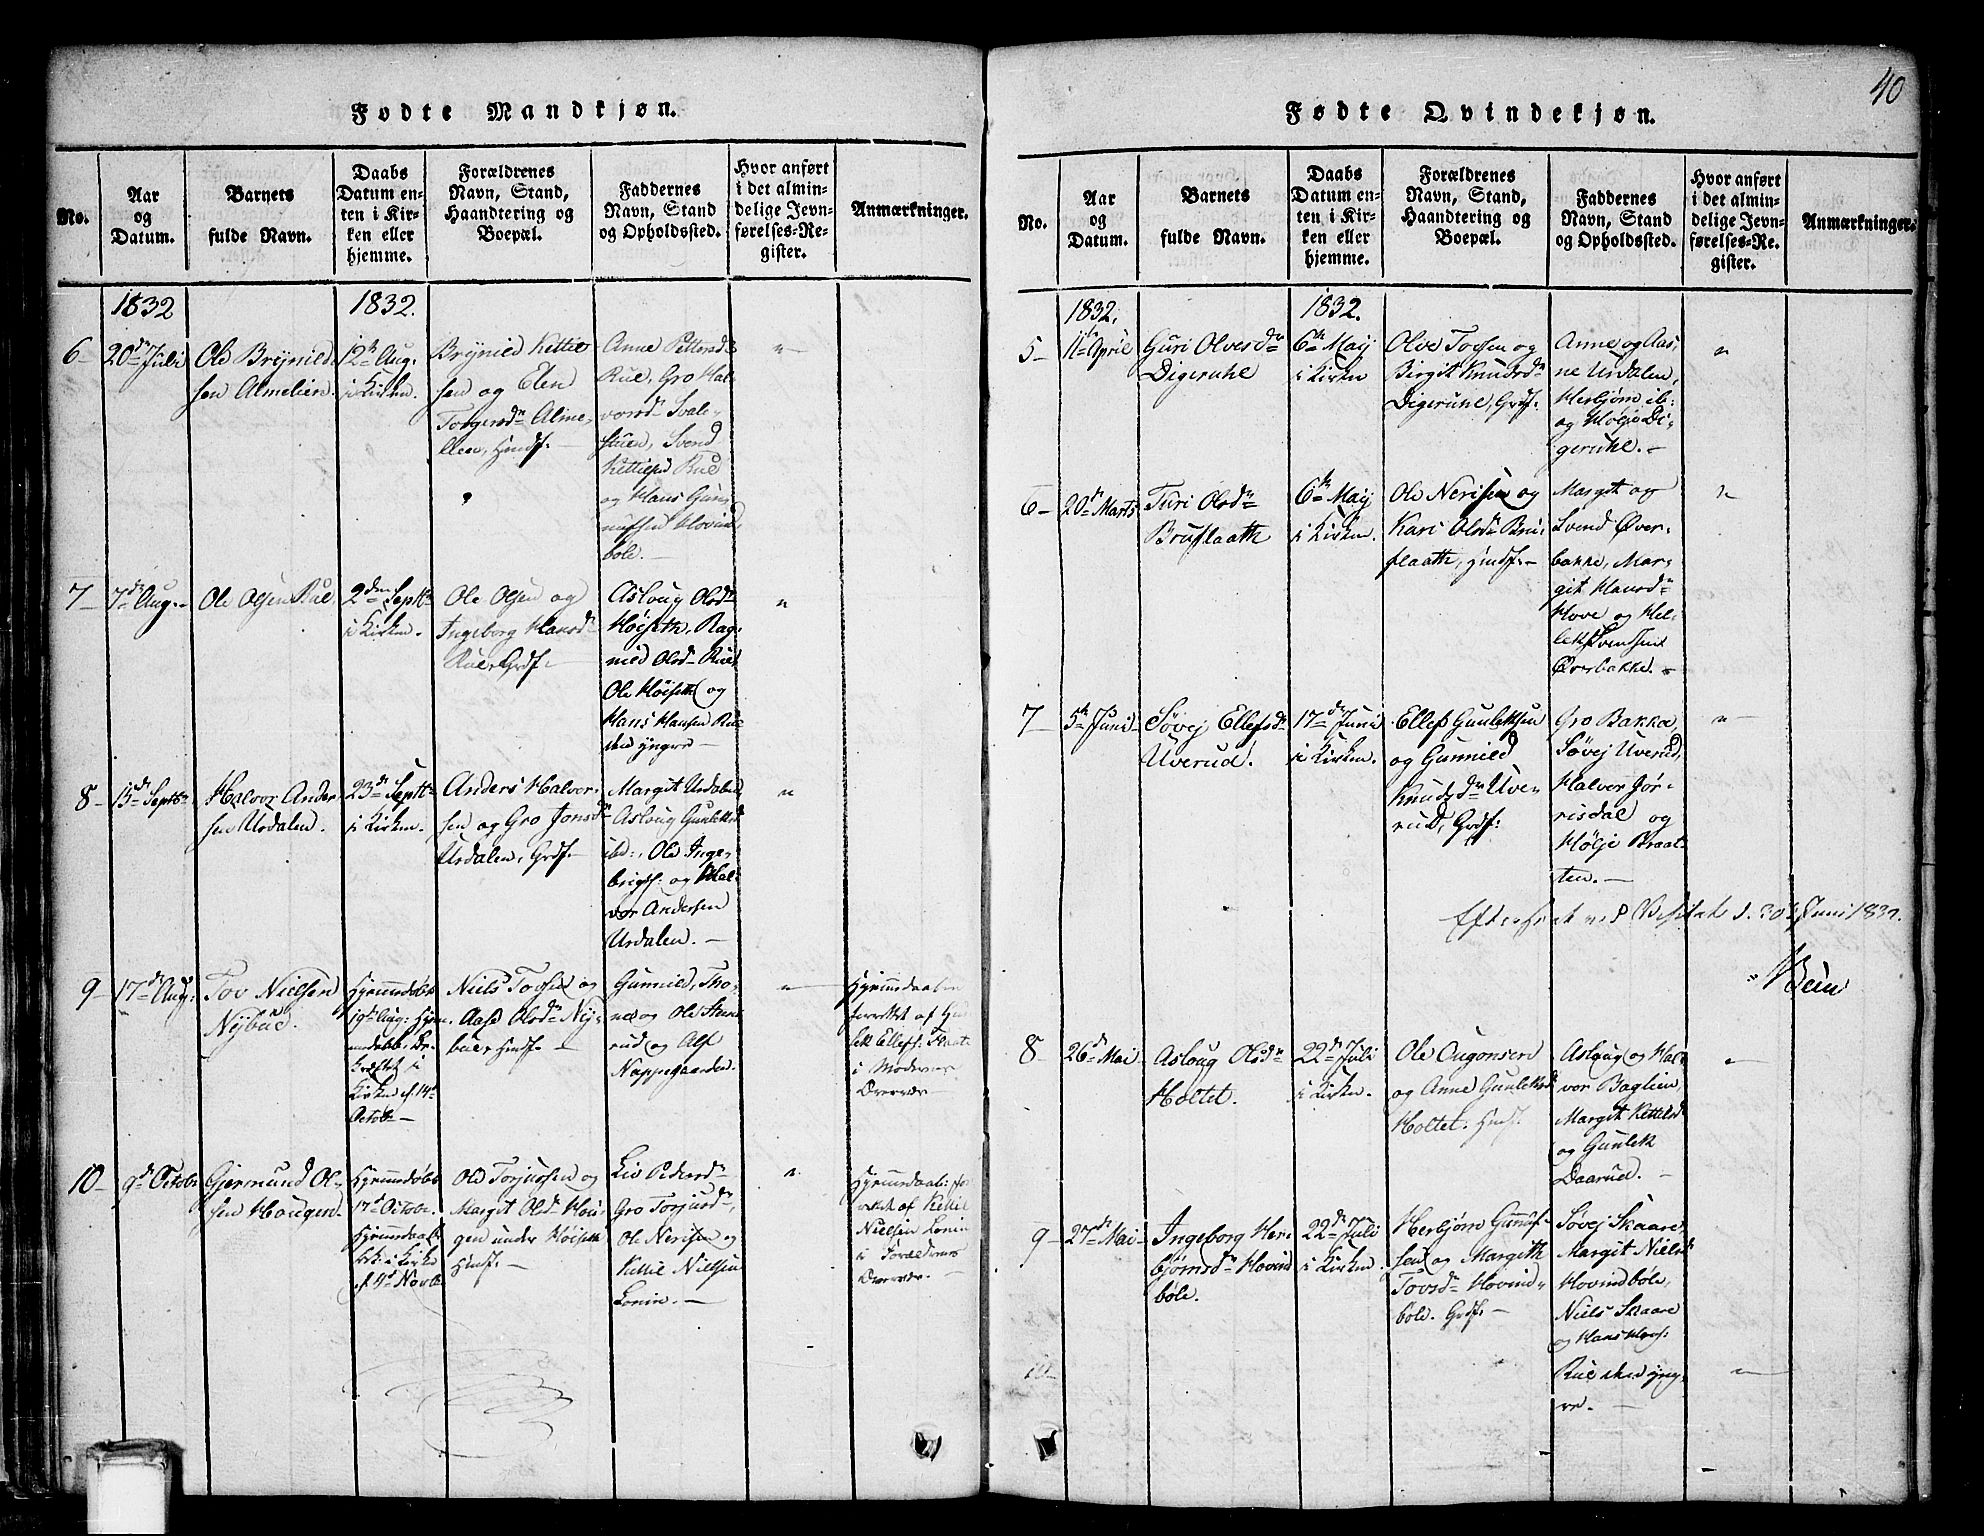 40
Fødte Mandkjøn.
No.
Aar
og
Datum.
Barnets
fulde Navn.
Daabs
Datum en-
ten i Kir-
ken eller
hjemme.
Forældrenes
Navn, Stand,
Haandtering og
Boepæl.
Faddernes
Navn, Stand
og Opholdssted.
Hvor anført
i det almin-
delige Jevn-
førelses-Re-
gister.
Anmærkninger.
1832
1832.
6
20de Juli
Ole Brynild
sen Almelien.
12te Aug.
i Kirken.
Brynild Kettel
sen og Elen
Torgersdr Alme-
lien, Huusf.
Anne Pettersd
Rue, Gro Hal-
vorsdr Svale-
stuen, Svend
Kettelsen Rue
og Hans Gun-
nufsen Hovind
bøle.
7
7de Aug.
Ole Olsen Rue
2den Septbr
i Kirken.
Ole Olsen og
Ingeborg Hansdr
Rue, Grdf.
Asloug Olsdr
Høiseth, Rag-
nild Olsdr Rue,
Ole Høiseth og
Hans Hansen Rue
den yngre
8
15de Septbr
Halvor Ander-
sen Urdalen.
23de Septbr
i Kirken.
Anders Halvor-
sen og Gro Jonsdr
Urdalen, Grdf.
Margit Urdalen
Asloug Gunleksd
ibd:, Ole Inge-
brigts: og Hal-
vor Andersen
Urdalen.
9
17de Aug:
Tov Nielsen
Nybue.
Hjemmedøbt
19de Aug: Hjem-
medaab. Be-
kræftet i
Kirken d. 14de
Octobr
Niels Tovsen og
Aase Olsdr Ny-
bue, Huusf.
Gunnild, Tho-
ne og Ole Steen-
rud og Alf
Nappegaarden.
Hjemmedaaben
forrettet af Gun-
lek Ellefs:
i Moderens
Overvær
10
9de Octobr
Gjermund Ol-
sen Haugen.
Hjemmedøbt
17de Octobr.
Hjemmedaab
i Kirke
d. 4de Novbr
Ole Torjussen og
Margit Olsdr Hou-
gen under Høiseth
Huusf.
Liv Pedersdr
Gro Torjusdr,
Ole Nerisen og
Kittil Nielsen
Lonin.
Hjemmedaab: for-
rettet af Kittil
Nielsen Lonin
i Forældrenes
Overvær.
Fødte Qvindekjøn.
No.
Aar
og
Datum.
Barnets
fulde Navn.
Daabs
Datum en-
ten i Kir-
ken eller
hjemme.
Forældrenes
Navn, Stand,
Haandtering og
Boepæl.
Faddernes
Navn, Stand
og Opholdssted.
Hvor anført
i det almin-
delige Jevn-
førelses-Re-
gister.
Anmærkninger.
1832.
1832.
5
11te April
Guri Olvesdr
Digeruhe
6te Maij
i Kirken
Olve Tovsen og
Birgit Knudsdr
Digeruhe, Grdf.
Anne og Aas-
ne Urdalen,
Herbjørn ib:
og Hølje Di-
geruhe.
6
20de Marts
Turi Olsdr
Bruflaath
6te Maij
i Kirken.
Ole Nerisen og
Kari Olsdr Bru-
flaath, Huusf.
Margit og
Svend Øver-
bakke, Mar-
git Hansdr
Hove og Hel-
lek Svendsen
Øverbakke.
7
5te Juni
Søvej Ellefsdr
Uverud.
17de Juni
i Kirken.
Ellef Gunleksen
og Gunnild
Knudsdr Uve-
rud, Grdf:
Gro Bakka,
Søvej Uverud,
Halvor Jør-
risdal og
Hølje Braat-
ten.
Efterseet ved Visitats d. 30te Juni 1832.
8
26de Mai
Asloug Olsdr
Holtet.
22de Juli
i Kirken.
Ole Ougonsen
og Anne Gunleksd
Holtet. Huusf.
Aslaug og Hal-
vor Baglien,
Margit Kettelsd
og Gunlek
Daarud.
9
27de Mai
Ingeborg Her-
bjørnsdr Hovind
bøle.
22de Juli
i Kirken.
Herbjørn Gunuf-
sen og Margith
Tovsdr Hovind-
bøle. Grdf.
Søvej Skaare
Margit Nielsd
Hovindbøle,
Niels Skaare
og Hans Hans:
Rue den yng-
re.
10